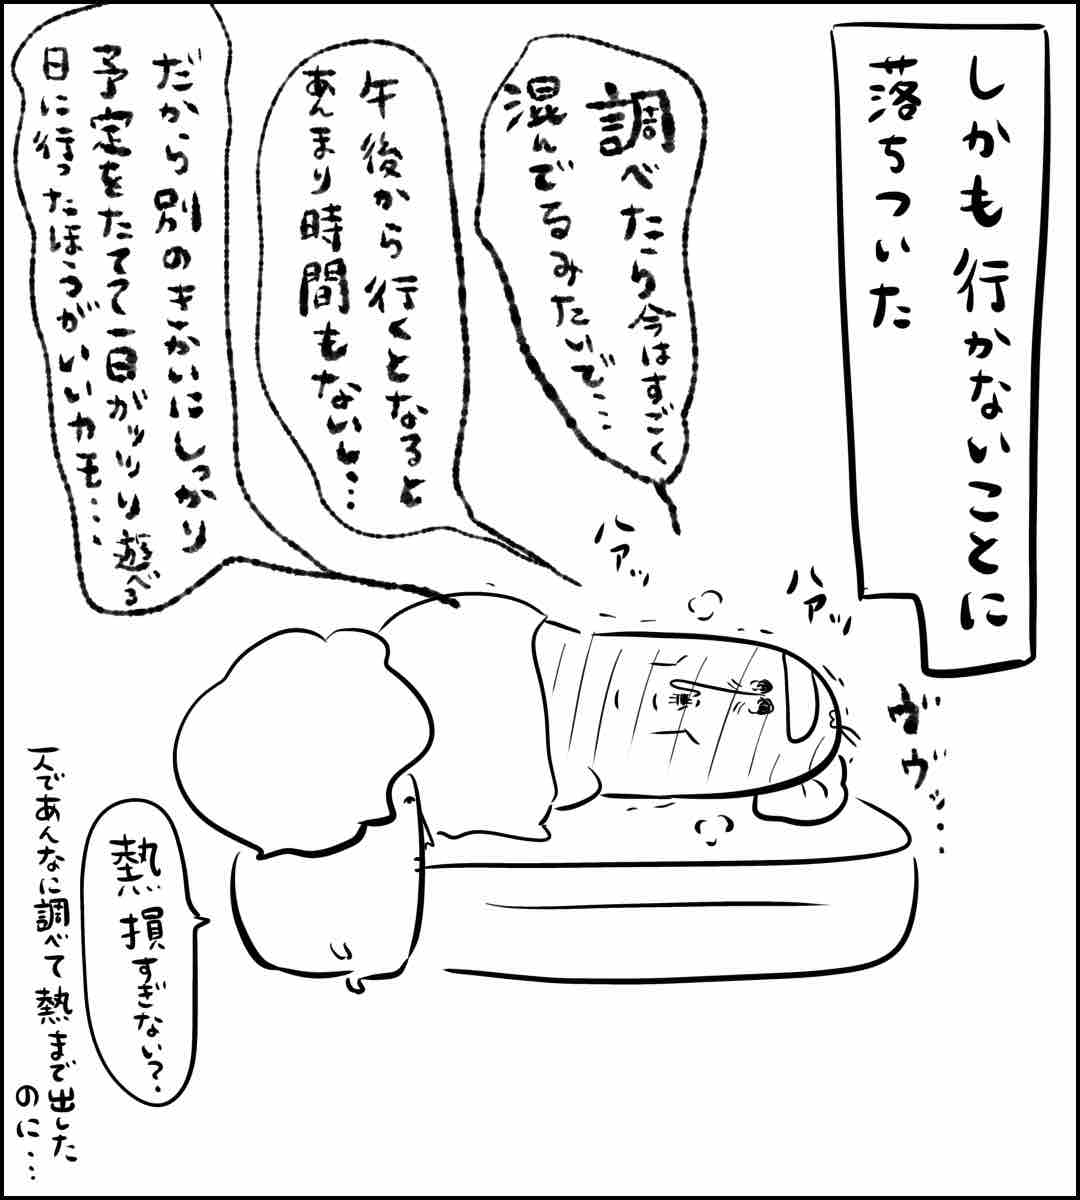 しかも行かないことに
落ちついた
調べたら今はすごく
混んでるみたいで…
午後から行くとなると
あんまり時間もないし…
だから別のきかいにしっかり
予定をたてて一日ガッツリ遊べる
日に行ったほうがいいカモ…
ハァッ
ハァッ
ヴッ
ヴッ…
熱損すぎない?
一人であんなに調べて熱まで出した
のに…